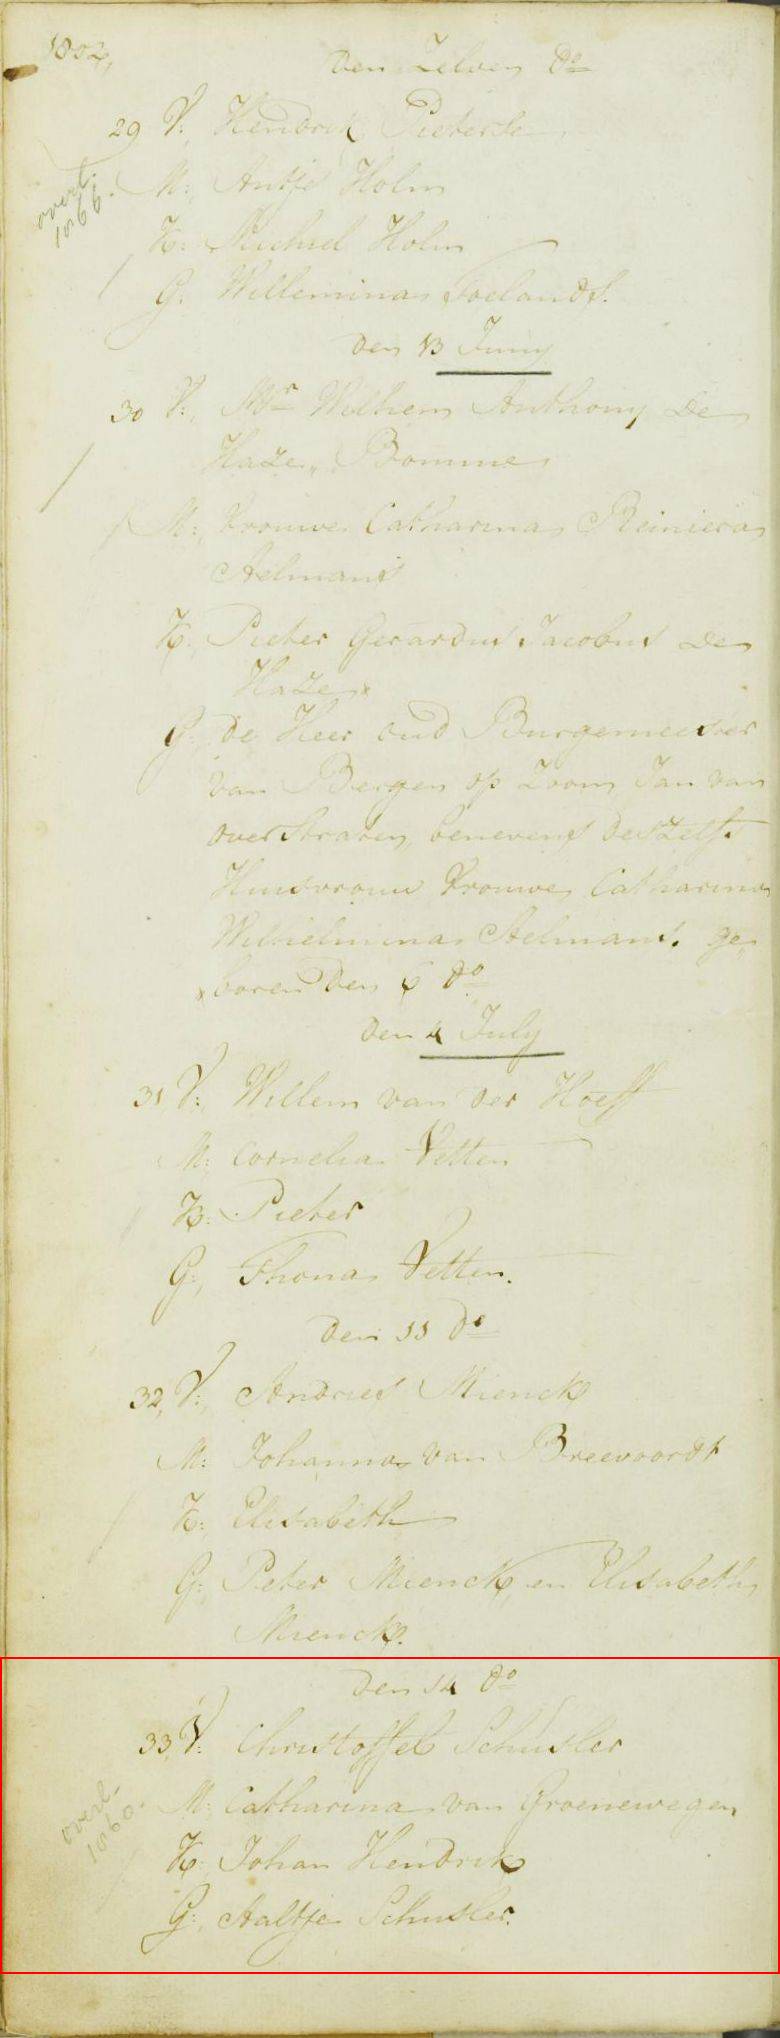 1802,
Den Zelven do
29 V: Hendrik Pieterse
overl. 1866.
M: Antje Holm
K: Michiel Holm
G: Willemina Roelands.
Den 13 Juny
30 V: Mr Wilhem Anthony De
Haze,, Bomme
M: Vrouwe Catharina Reiniera
Aelmans
K: Pieter Gerardus Jacobus De
Haze
G: De Heer oud Burgemeester
van Bergen op Zoom, Jan van
overstraten, benevens deszelfs
Huisvrouw Vrouwe Catharina
Wilhelmina Aelmans. ge,,
boren Den 6 do
Den 4 July
31 V: Willem van der Hoeff
M: Cornelia Vetten
K: Pieter
G: Thona Vetten.
Den 11 do
32, V: Andries Mienck
M: Johanna van Breevoordt
K: Elisabeth
G: Peter Mienck, en Elisabeth
Mienck.
Den 14 do
33, V: Christoffel Schusler
M: Catharina van Groenewegen
overl. 1860.
K: Johan Hendrik
G: Aaltje Schusler.